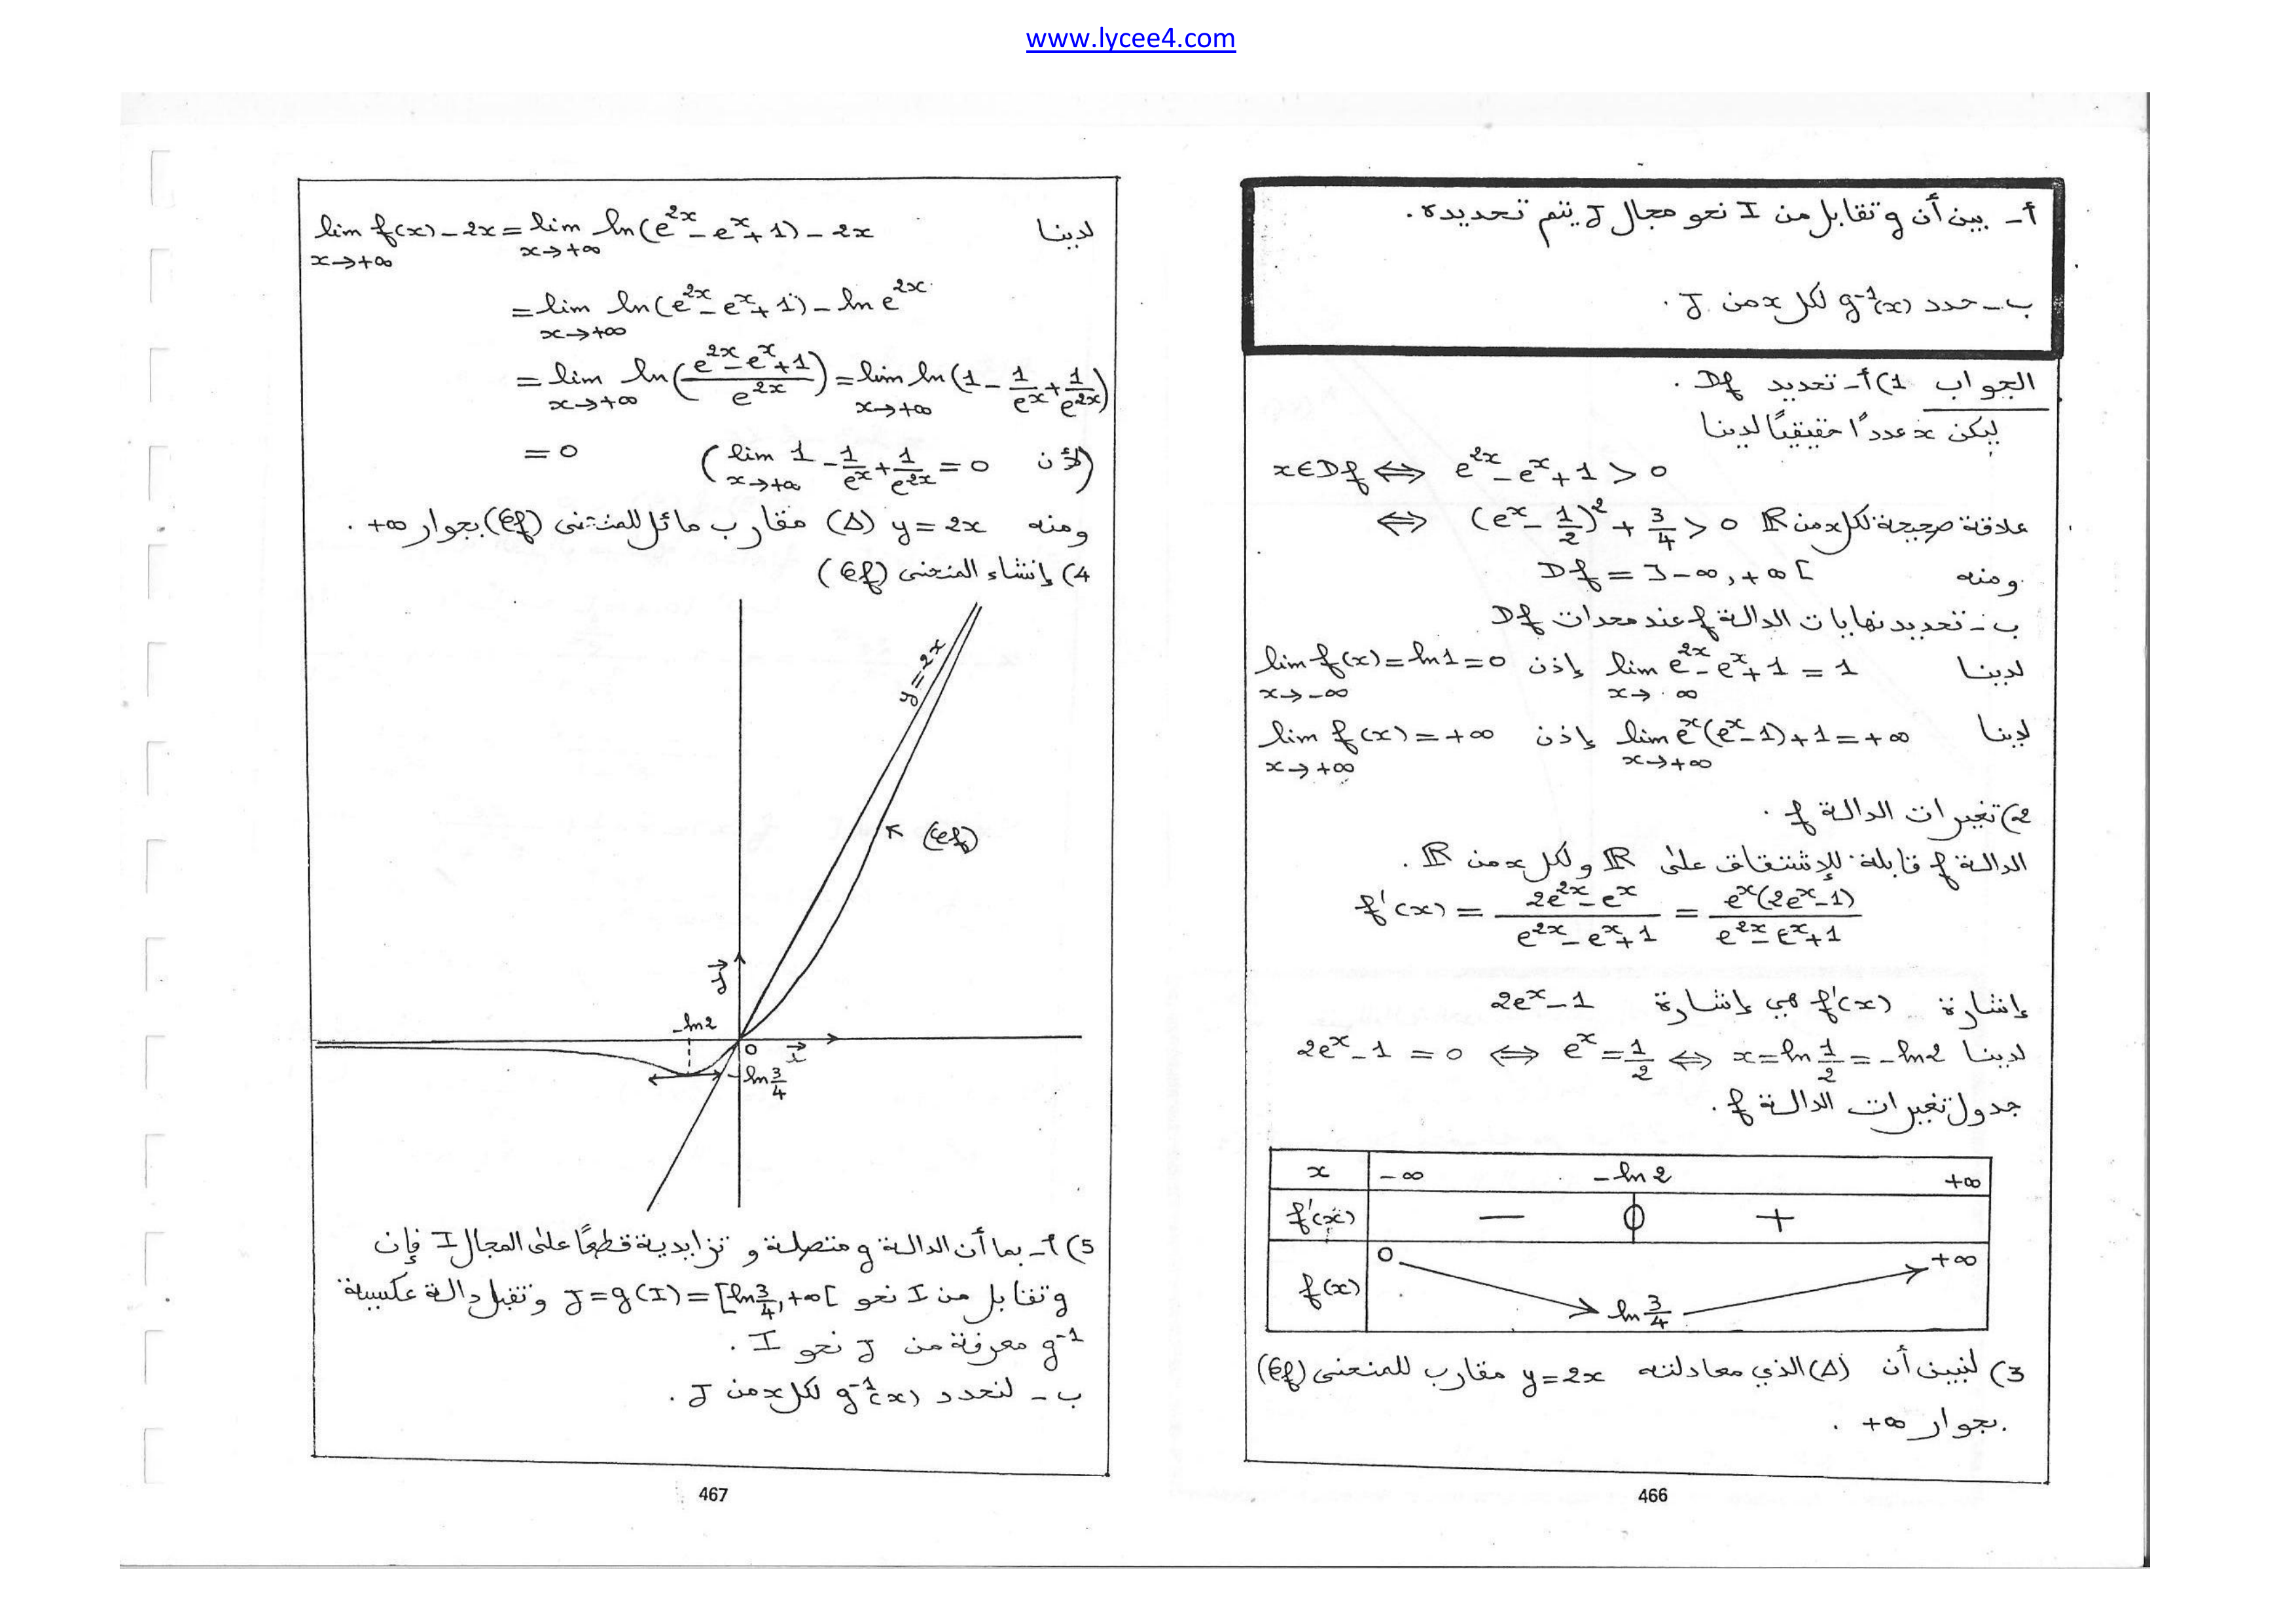 www.lycee4.com
أ- بين أن g تقابل من I نحو مجال J يتم تحديده.
ب- حدد g⁻¹(x) لكل x من J.
الجواب 1) أ- تحديد Df.
ليكن x عددًا حقيقيًا لدينا
x∈Df ⟺ e^{2x} - e^x + 1 > 0
⟺ (e^x - 1/2)² + 3/4 > 0 علاقة صحيحة لكل x من ℝ
ومنه Df = ]-∞, +∞[
ب- تحديد نهايات الدالة f عند محدات Df
لدينا lim_{x→ ∞} e^{2x} - e^x + 1 = 1 إذن lim_{x→-∞} f(x) = ln1 = 0
لدينا lim_{x→+∞} e^x(e^x - 1) + 1 = +∞ إذن lim_{x→+∞} f(x) = +∞
2) تغيرات الدالة f.
الدالة f قابلة للإشتقاق على ℝ ولكل x من ℝ.
f'(x) = (2e^{2x} - e^x)/(e^{2x} - e^x + 1) = e^x(2e^x - 1)/(e^{2x} - e^x + 1)
إشارة f'(x) هي إشارة 2e^x - 1
لدينا 2e^x - 1 = 0 ⟺ e^x = 1/2 ⟺ x = ln 1/2 = -ln2
جدول تغيرات الدالة f.
x -∞ -ln2 +∞
f'(x) - 0 +
f(x) 0 ln 3/4 +∞
3) لنبين أن (Δ) الذي معادلته y = 2x مقارب للمنحنى (Cf)
بجوار +∞.
466
لدينا lim_{x→+∞} f(x) - 2x = lim_{x→+∞} ln(e^{2x} - e^x + 1) - 2x
= lim_{x→+∞} ln(e^{2x} - e^x + 1) - ln e^{2x}
= lim_{x→+∞} ln((e^{2x} - e^x + 1)/e^{2x}) = lim_{x→+∞} ln(1 - 1/e^x + 1/e^{2x})
= 0 (لأن lim_{x→+∞} 1 - 1/e^x + 1/e^{2x} = 0)
ومنه y = 2x (Δ) مقارب مائل للمنحنى (Cf) بجوار +∞.
4) إنشاء المنحنى (Cf)
y = 2x
(Cf)
j
-ln2
O i
ln 3/4
5) أ- بما أن الدالة g متصلة و تزايدية قطعًا على المجال I فإن
g تقابل من I نحو J = g(I) = [ln 3/4, +∞[ وتقبل دالة عكسية
g⁻¹ معرفة من J نحو I.
ب- لنحدد g⁻¹(x) لكل x من J.
467